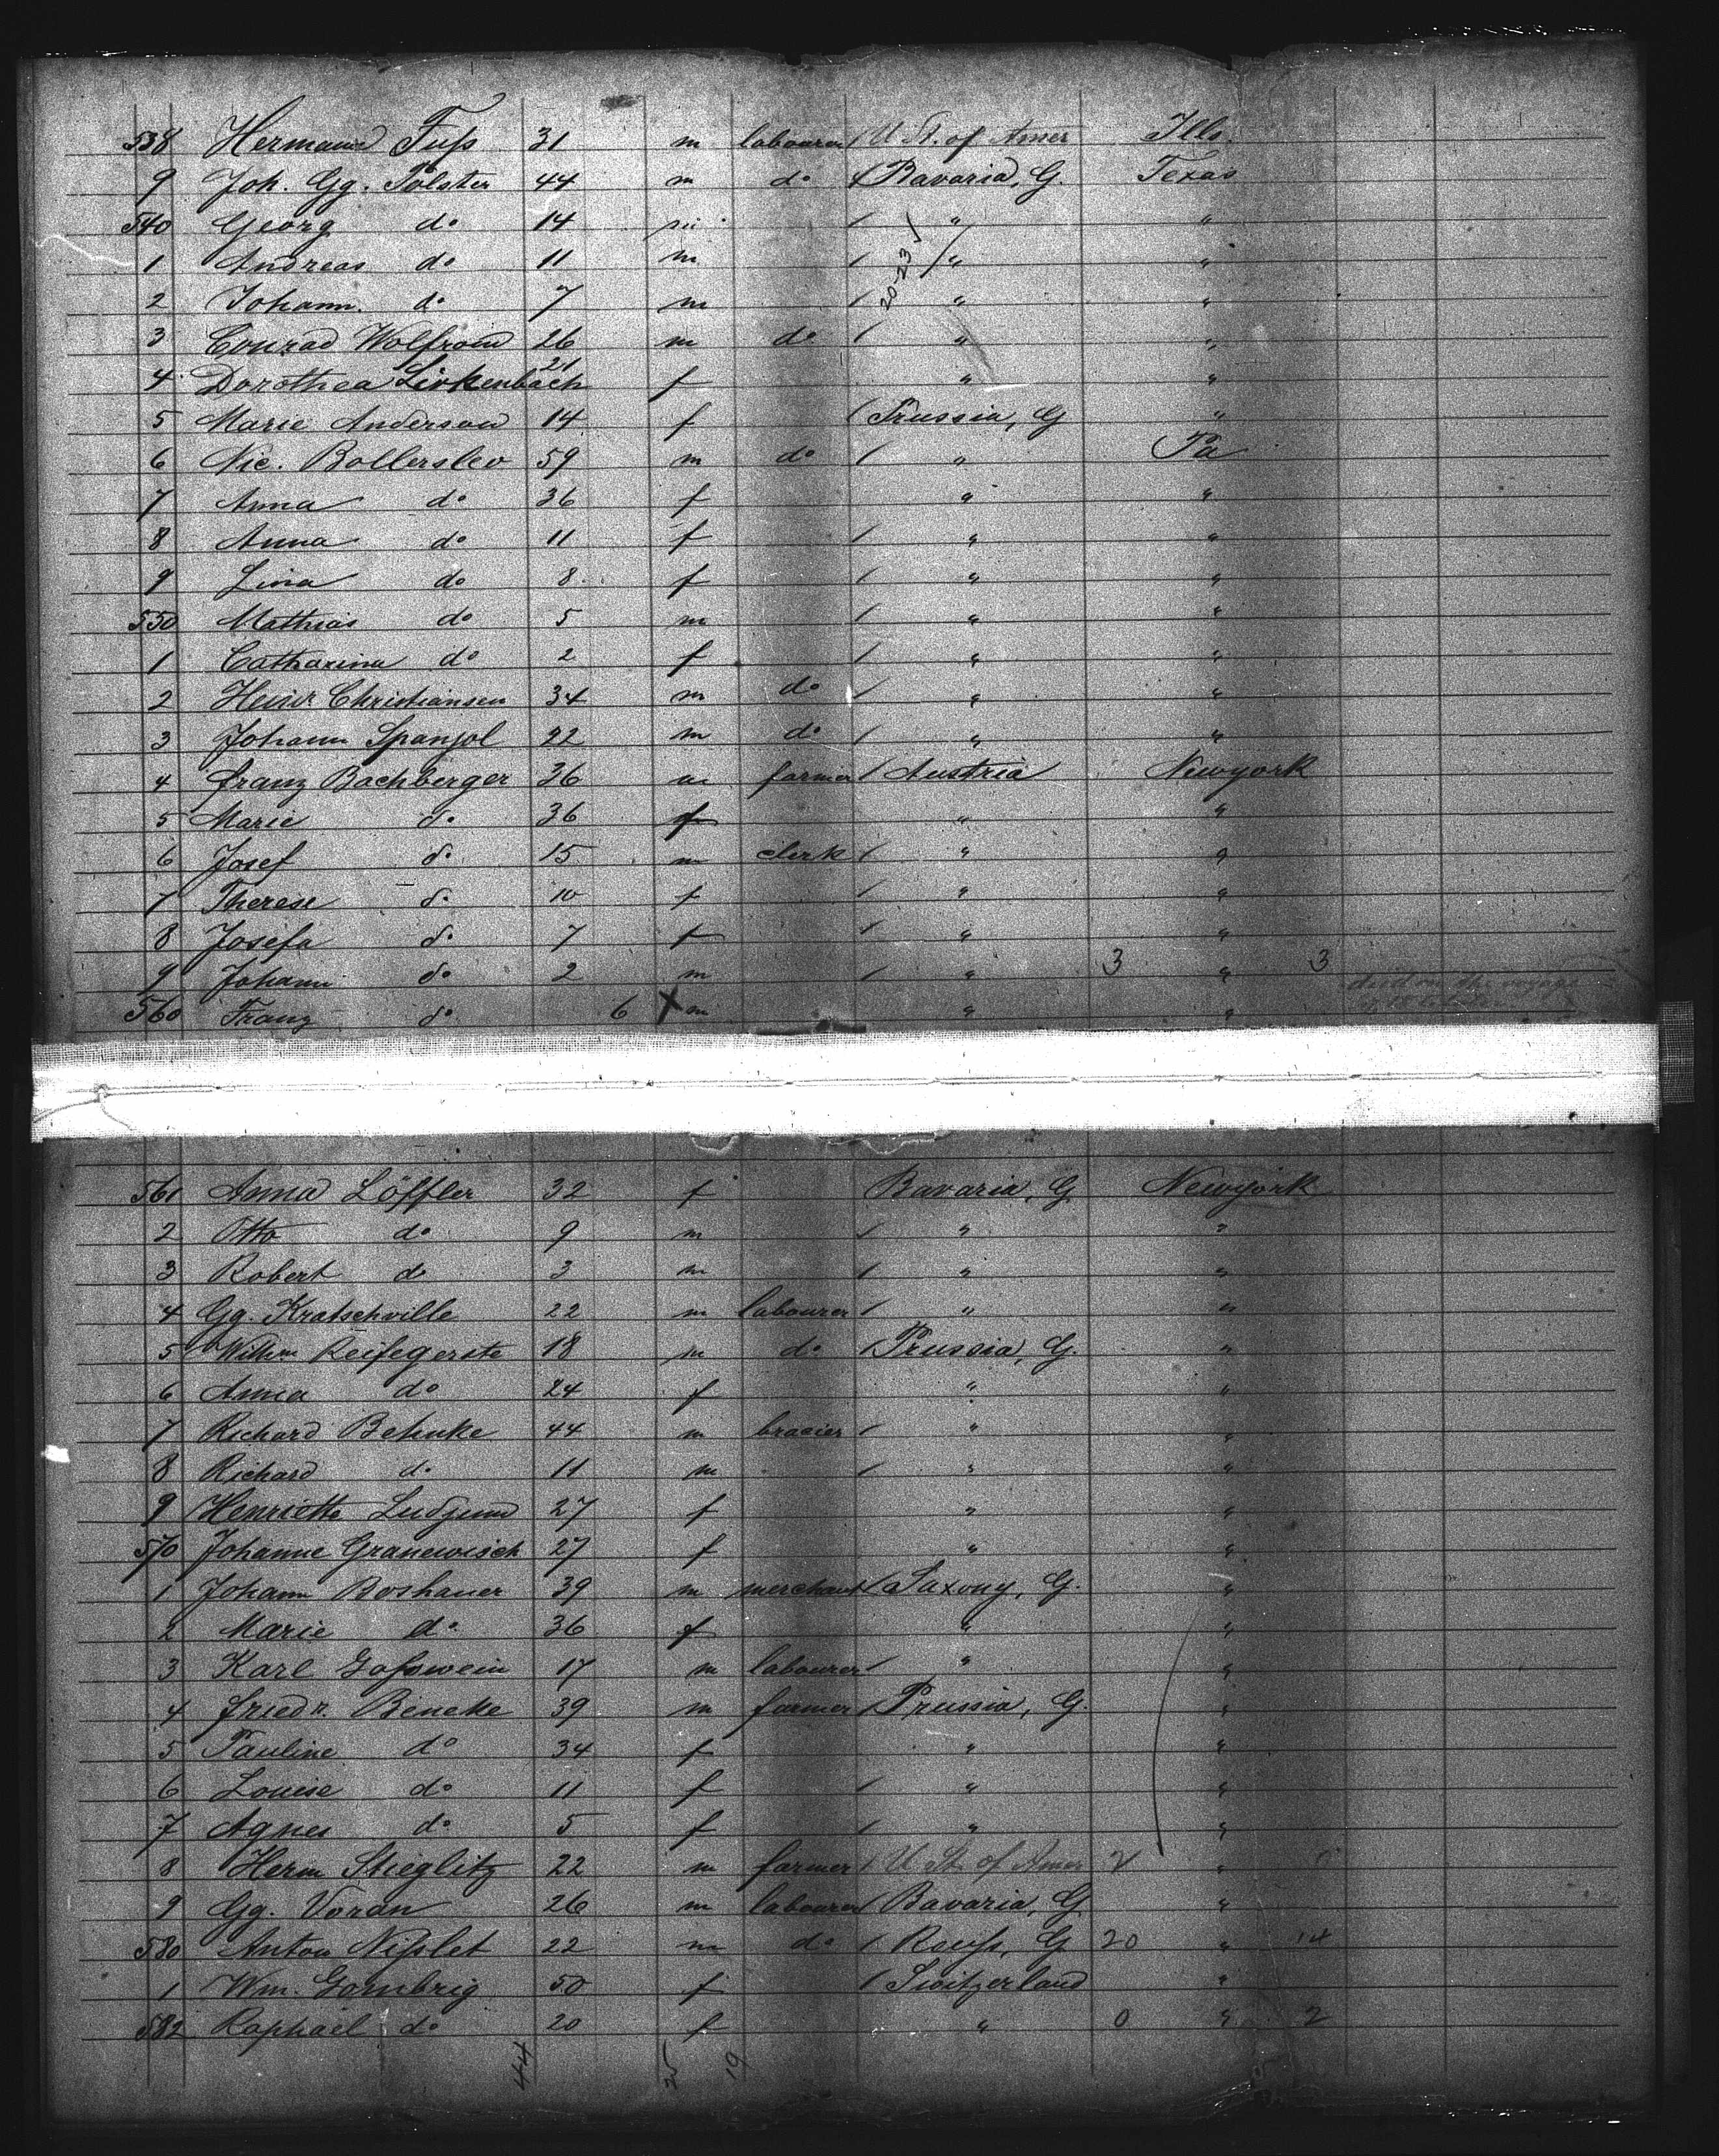 538 Hermann Fuß 31 m labourer U St. of Amer Ills.
9 Joh. Gg. Pölster 44 m do Bavaria, G. Texas
540 Georg do 14 m " "
1 Andreas do 11 m " "
2 Johann. do 7 m 20-23 " "
3 Conrad Wolfrom 26 m do " "
4 Dorothea Lirkenbach 21 f " "
5 Marie Anderson 14 f Prussia, G "
6 Nic. Bollerslev 59 m do " Pa
7 Anna do 36 f " "
8 Anna do 11 f " "
9 Lina do 8 f " "
550 Mathias do 5 m " "
1 Catharina do 2 f " "
2 Heinr. Christiansen 34 m do " "
3 Johann Spanjol 22 m do " "
4 Franz Bachberger 36 m farmer Austria Newyork
5 Marie do 36 f " "
6 Josef do 15 m clerk " "
7 Therese do 10 f " "
8 Josefa do 7 f " "
9 Johann do 2 m " 3 " 3
560 Franz do 6 X m " " died on the voyage
561 Anna Löffler 32 f Bavaria, G. Newyork
2 Otto do 9 m " "
3 Robert do 3 m " "
4 Gg. Kratschville 22 m labourer " "
5 Wilhm Reifegerste 18 m do Prussia, G. "
6 Anna do 24 f " "
7 Richard Behnke 44 m brazier " "
8 Richard do 11 m " "
9 Henriette 27 f " "
570 Johanne Granewisch 27 f " "
1 Johann Boshauer 39 m merchant Saxony, G. "
2 Marie do 36 f " "
3 Karl Goßwein 17 m labourer " "
4 Friedr. Beneke 39 m farmer Prussia, G. "
5 Pauline do 34 f " "
6 Louise do 11 f " "
7 Agnes do 5 f " "
8 Herm Stieglitz 22 m farmer U St. of Amer 2 "
9 Gg. Voran 26 m labourer Bavaria, G "
580 Anton Nißlet 22 m do Reuß, G 20 " 14
1 Wm. Gombrig 50 f Switzerland "
582 Raphael do 20 f " 0 " 2
44 25 19